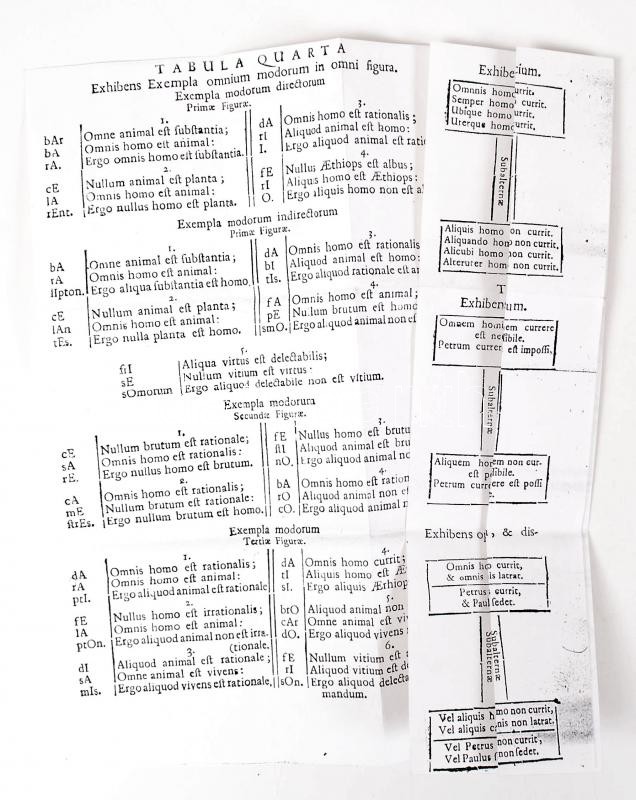 TABULA QUARTA
Exhibens Exempla omnium modorum in omni figura.
Exempla modorum directorum
Primæ Figuræ.
1.
bAr Omne animal eſt ſubſtantia;
bA Omnis homo eſt animal:
rA. Ergo omnis homo eſt ſubſtantia.
2.
cE Nullum animal eſt planta;
lA Omnis homo eſt animal:
rEnt. Ergo nullus homo eſt planta.
3.
dA Omnis homo eſt rationalis;
rI Aliquod animal eſt homo:
I. Ergo aliquod animal eſt
4.
fE Nullus Æthiops eſt albus;
rI Aliquis homo eſt Æthiops:
O. Ergo aliquis homo non eſt
Exempla modorum indirectorum
Primæ Figuræ.
1.
bA Omne animal eſt ſubſtantia;
rA Omnis homo eſt animal:
lIpton. Ergo aliqua ſubſtantia eſt homo.
2.
cE Nullum animal eſt planta;
lAn Omnis homo eſt animal:
tEs. Ergo nulla planta eſt homo.
3.
dA Omnis homo eſt rationalis
bI Aliquod animal eſt homo:
tIs. Ergo aliquod rationale eſt
4.
fA Omnis homo eſt animal;
pE Nullum brutum eſt homo:
ſmO. Ergo aliquod animal non
5.
frI Aliqua virtus eſt delectabilis;
sE Nullum vitium eſt virtus:
sOmorum Ergo aliquod delectabile non eſt vitium.
Exempla modorum
Secundæ Figuræ.
1.
cE Nullum brutum eſt rationale;
sA Omnis homo eſt rationalis:
rE. Ergo nullus homo eſt brutum.
2.
cA Omnis homo eſt rationalis;
mE Nullum brutum eſt rationale:
ſtrEs. Ergo nullum brutum eſt homo.
3.
fE Nullus homo eſt
ſtI Aliquod animal eſt
nO. Ergo aliquod animal
4.
bA Omnis homo eſt
rO Aliquod animal non
cO. Ergo aliquod animal
Exempla modorum
Tertiæ Figuræ.
1.
dA Omnis homo eſt rationalis;
rA Omnis homo eſt animal:
ptI. Ergo aliquod animal eſt rationale
2.
fE Nullus homo eſt irrationalis;
lA Omnis homo eſt animal:
ptOn. Ergo aliquod animal non eſt irra.
(tionale.
3.
dI Aliquod animal eſt rationale;
sA Omne animal eſt vivens:
mIs. Ergo aliquod vivens eſt rationale.
4.
dA Omnis homo currit;
tI Aliquis homo eſt
sI. Ergo aliquis
5.
brO Aliquod animal non
cAr Omne animal eſt
dO. Ergo aliquod vivens
6.
fE Nullum vitium eſt
rI Aliquod vitium eſt
ſOn. Ergo aliquod
mandum.
Omnnis homo currit.
Semper homo currit.
Ubique homo currit.
Uterque homo currit.
Subalternæ
Aliquis homo non currit.
Aliquando homo non currit.
Alicubi homo non currit.
Alteruter homo non currit.
T
Omnem hominem currere
eſt
Petrum currere eſt impoſſi.
Subalternæ
Aliquem hominem non cur-
eſt
Petrum currere eſt poſſi
Exhibens & dis-
Omnis homo currit,
& omnis latrat.
Petrus currit,
& Paul ſedet.
Subalternæ
Vel aliquis homo non currit,
Vel aliquis canis non latrat.
Vel Petrus non currit,
Vel Paulus non ſedet.